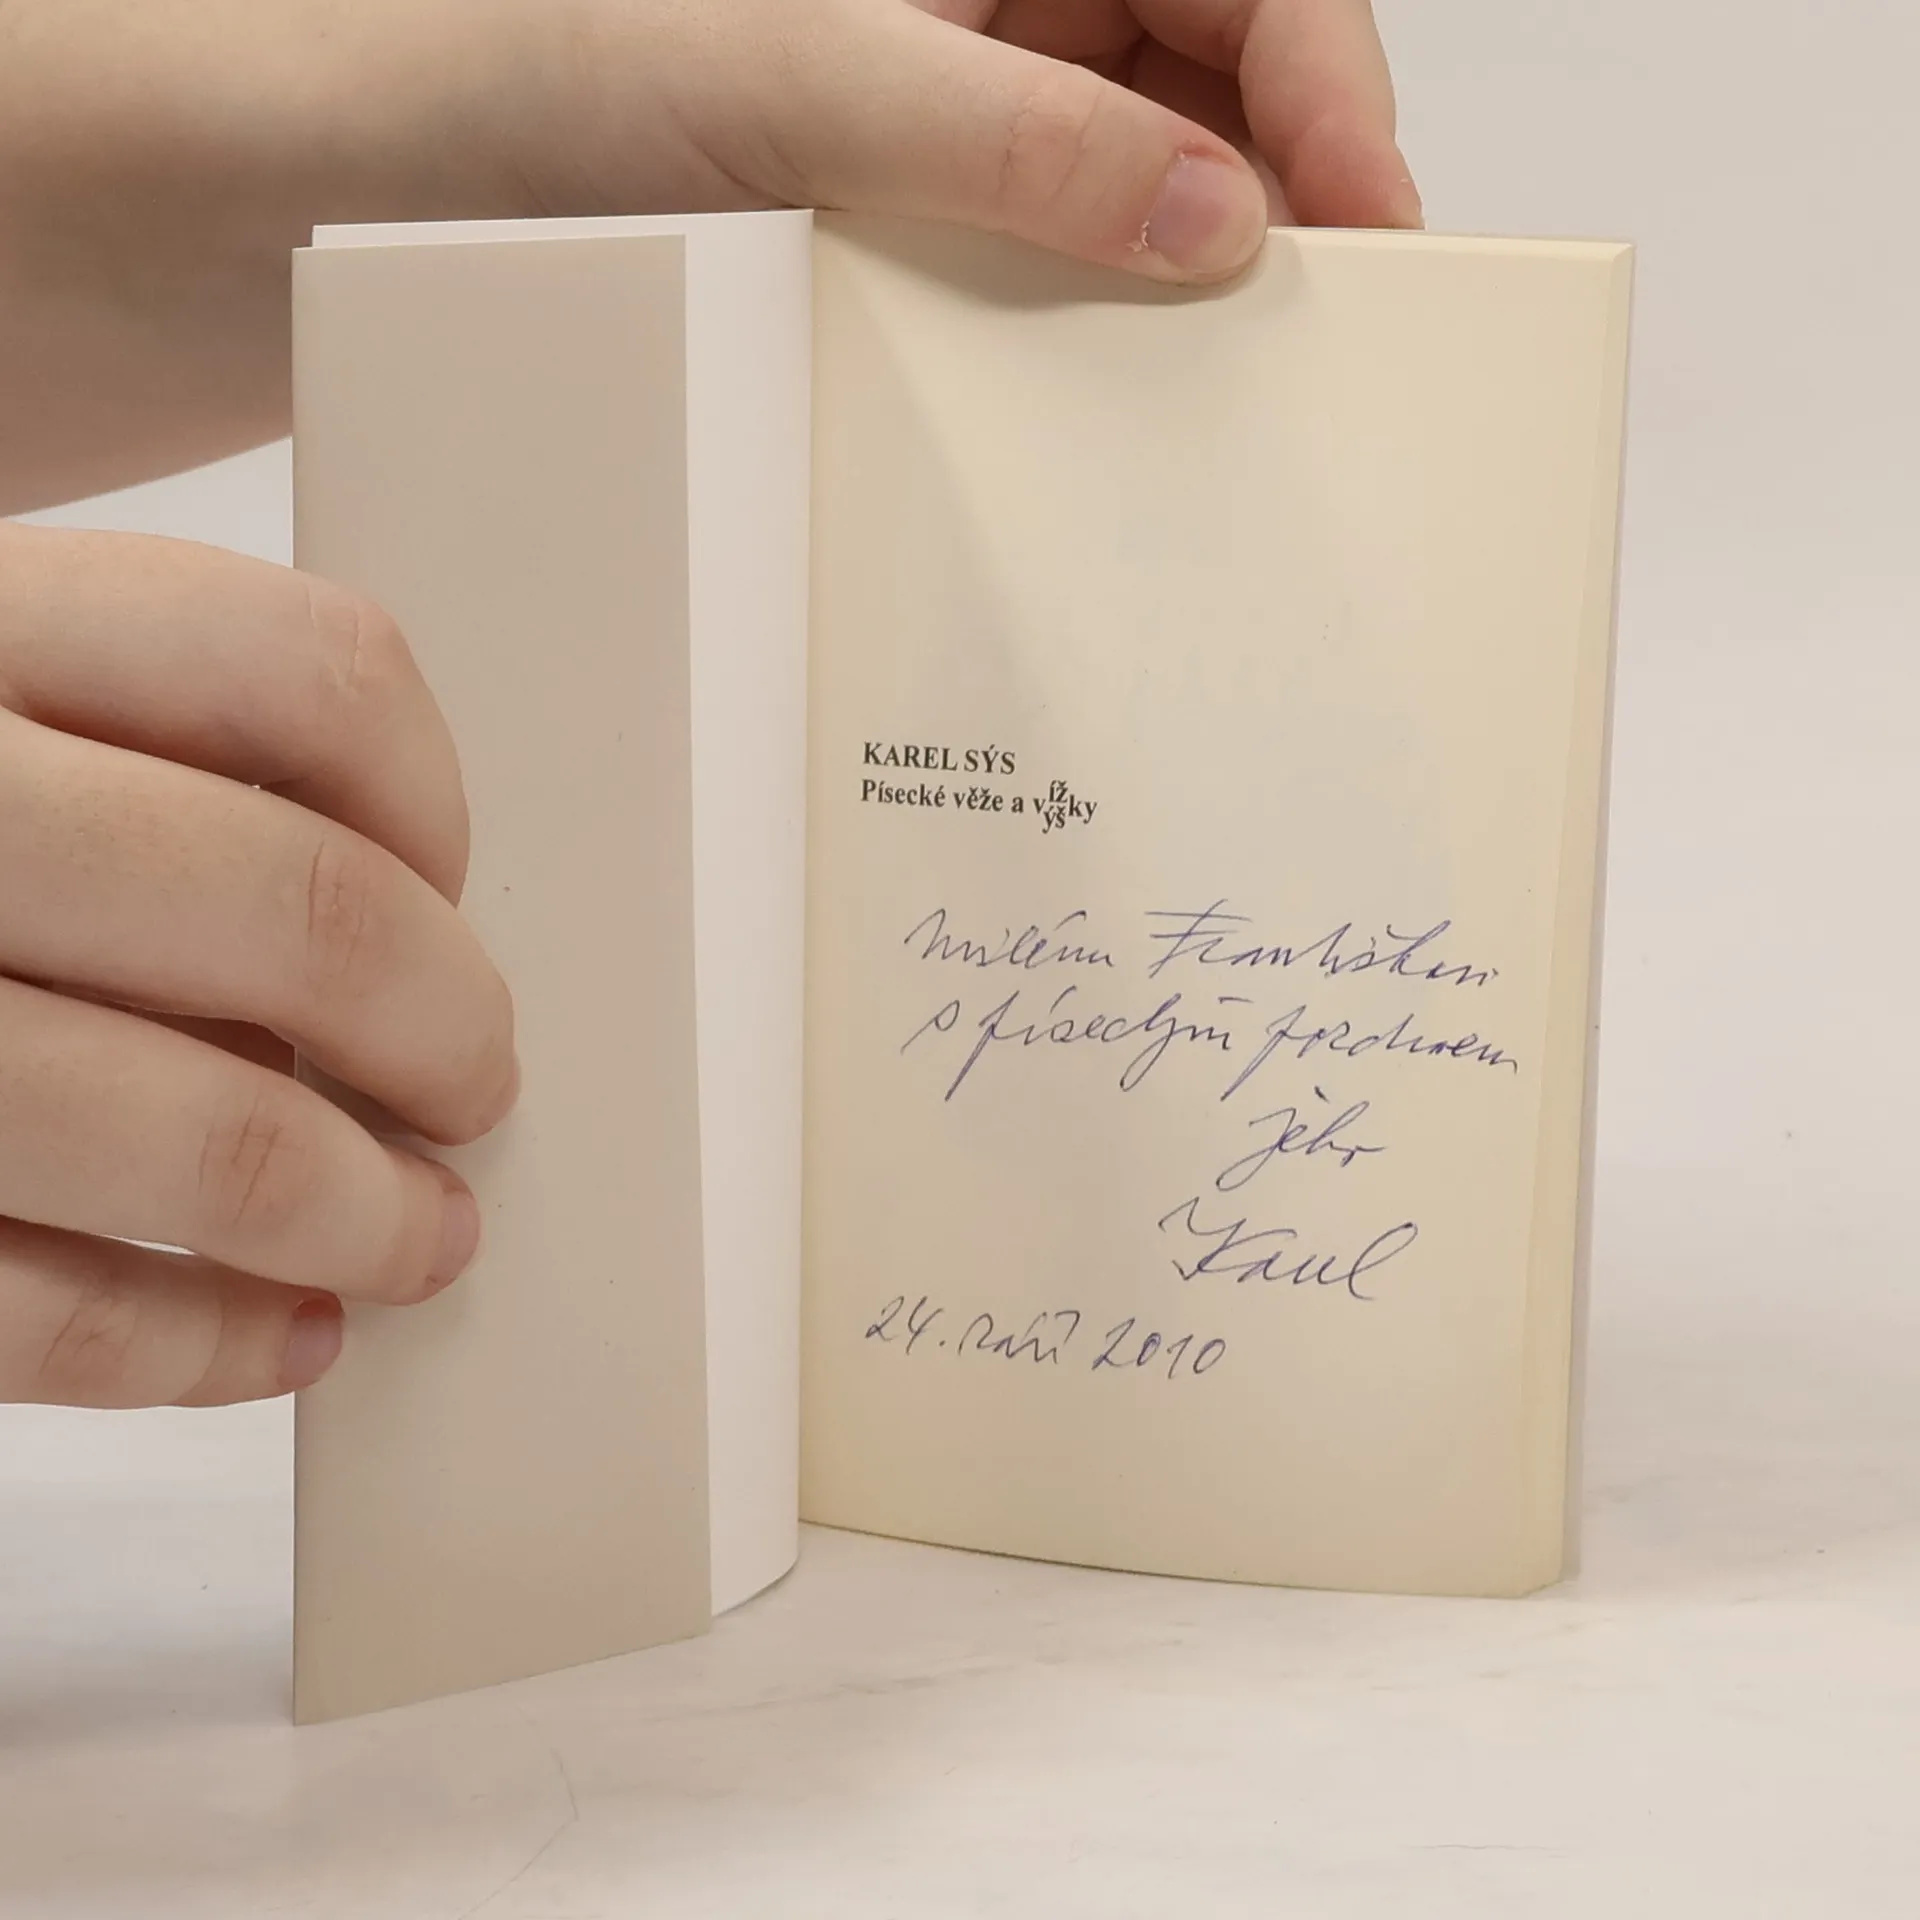 KAREL SÝS
Písecké věže a vížky výšky
Milému Františkovi
s píseckým pozdravem
jeho
Karel
24. září 2010